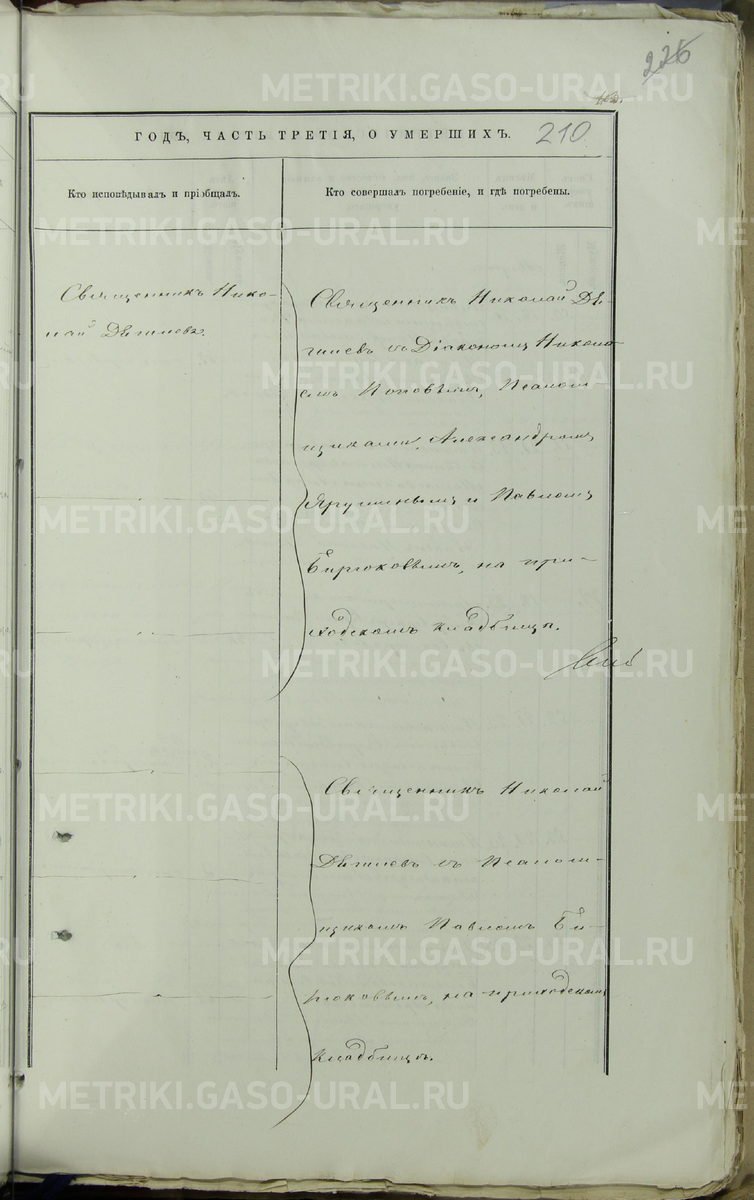 226
210
ГОДЪ, ЧАСТЬ ТРЕТІЯ, О УМЕРШИХЪ.
Кто исповѣдывалъ и пріобщалъ.
Кто совершалъ погребеніе, и гдѣ погребены.
Священникъ Нико-
лай Дягилевъ.
Священникъ Николай Дя-
гилевъ съ Діакономъ Никола-
емъ Поповымъ, Псалом-
щиками, Александромъ
Ярушинымъ и Павломъ
Бирюковымъ, на при-
ходскомъ кладбищѣ.
Священникъ Николай
Дягилевъ съ Псаломщ-
щикомъ Павломъ Би-
рюковымъ, на приходскомъ
кладбищѣ.
METRIKI.GASO-URAL.RU